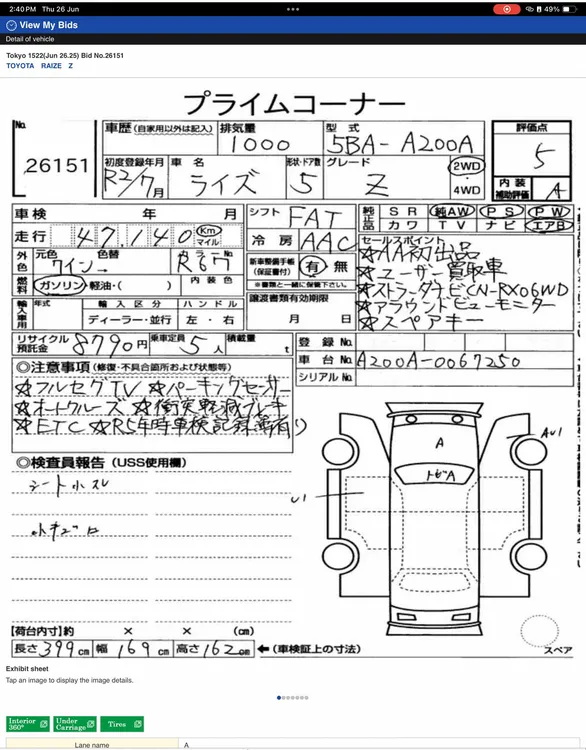 2:40 PM Thu 26 Jun
49%
View My Bids
Detail of vehicle
Tokyo 1522(Jun 26.25) Bid No.26151
TOYOTA RAIZE Z
プライムコーナー
No. 26151
車歴 (自家用以外は記入) 排気量 1000 型式 5BA-A200A
初度登録年月 R2/7月 車名 ライズ 形状・ドア数 5 グレード Z 2WD 4WD
評価点 5
内装補助評価 A
車検 年 月
走行 47,140 Km マイル
シフト FAT
冷房 AAC
純正品 SR 純AW PS PW
カワ TV ナビ エアB
外色 元色 ワイン 色替 → カラーNo. R67
燃料 ガソリン・軽油・( ) 内装色
新車整備手帳(保証書付) 有 無
※書類と一緒に保管下さい。
セールスポイント
☆AA初出品
☆ユーザー買取車
☆ストラーダナビCN-RX06WD
☆アラウンドビューモニター
☆スペアキー
輸入車用 年式 輸入区分 ハンドル
ディーラー・並行 左・右
譲渡書類有効期限
月 日
リサイクル預託金 8790円 乗車定員 5人 積載量 t
登録No.
車台No. A200A-0067250
シリアルNo.
◎注意事項 (修復・不具合箇所および状態等)
☆フルセグTV ☆パーキングセンサー
☆オートクルーズ ☆衝突軽減ブレーキ
☆ETC ☆R5年時車検記録簿有り
◎検査員報告 (USS使用欄)
シート小スレ
小キズ
A
トビA
AU1
U1
スペア
【荷台内寸】約 × × (cm)
長さ 399cm 幅 169cm 高さ 162cm ←(車検証上の寸法)
Exhibit sheet
Tap an image to display the image details.
Interior 360°
Under Carriage
Tires
Lane name A